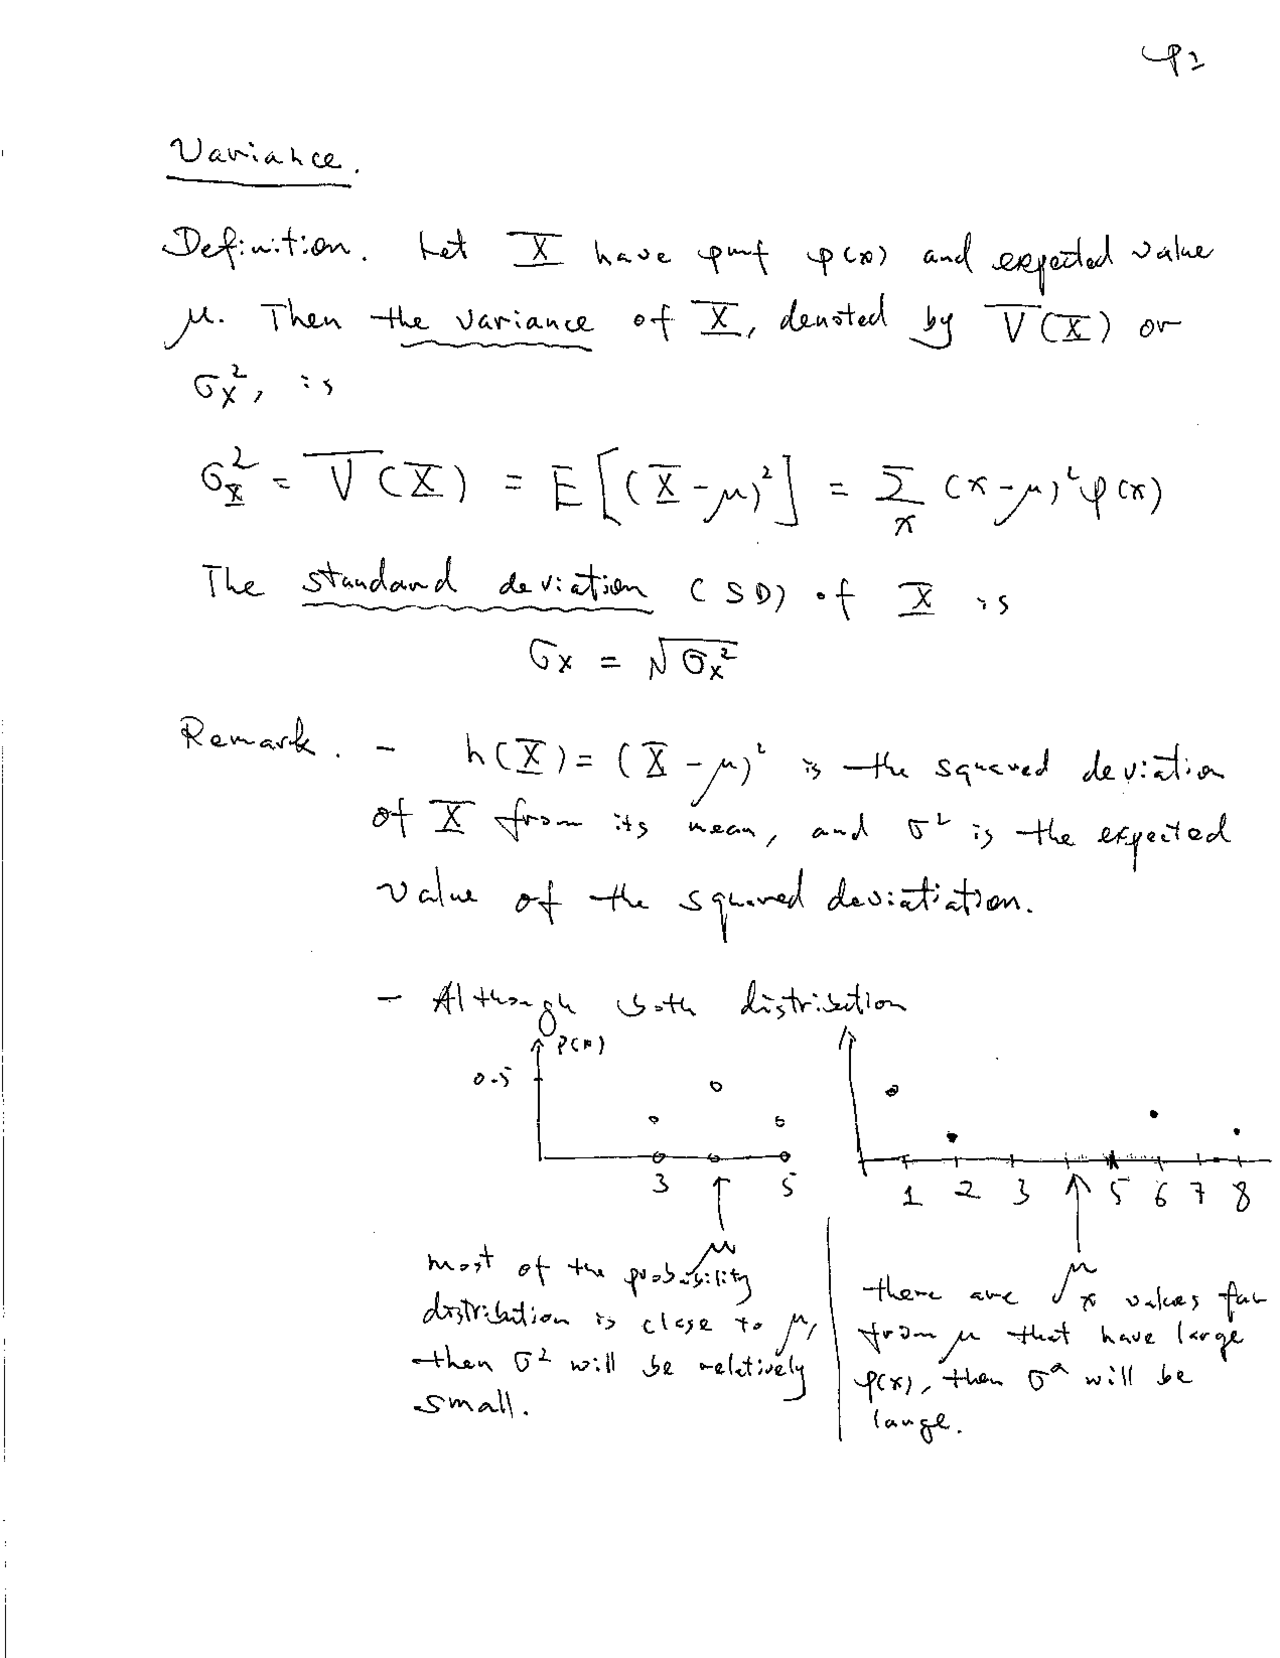 p2
Variance.
Definition. Let X have pmf p(x) and expected value
μ. Then the variance of X, denoted by V(X) or
σ_X², is
σ_X² = V(X) = E[(X-μ)²] = Σ_x (x-μ)² p(x)
The standard deviation (SD) of X is
σ_X = √σ_X²
Remark. - h(X) = (X-μ)² is the squared deviation
of X from its mean, and σ² is the expected
value of the squared deviatiation.
- Although both distribution
p(x)
0.5
3 5
1 2 3 5 6 7 8
μ
most of the probability
distribution is close to μ,
then σ² will be relatively
small.
μ
there are x values far
from μ that have large
p(x), then σ² will be
large.